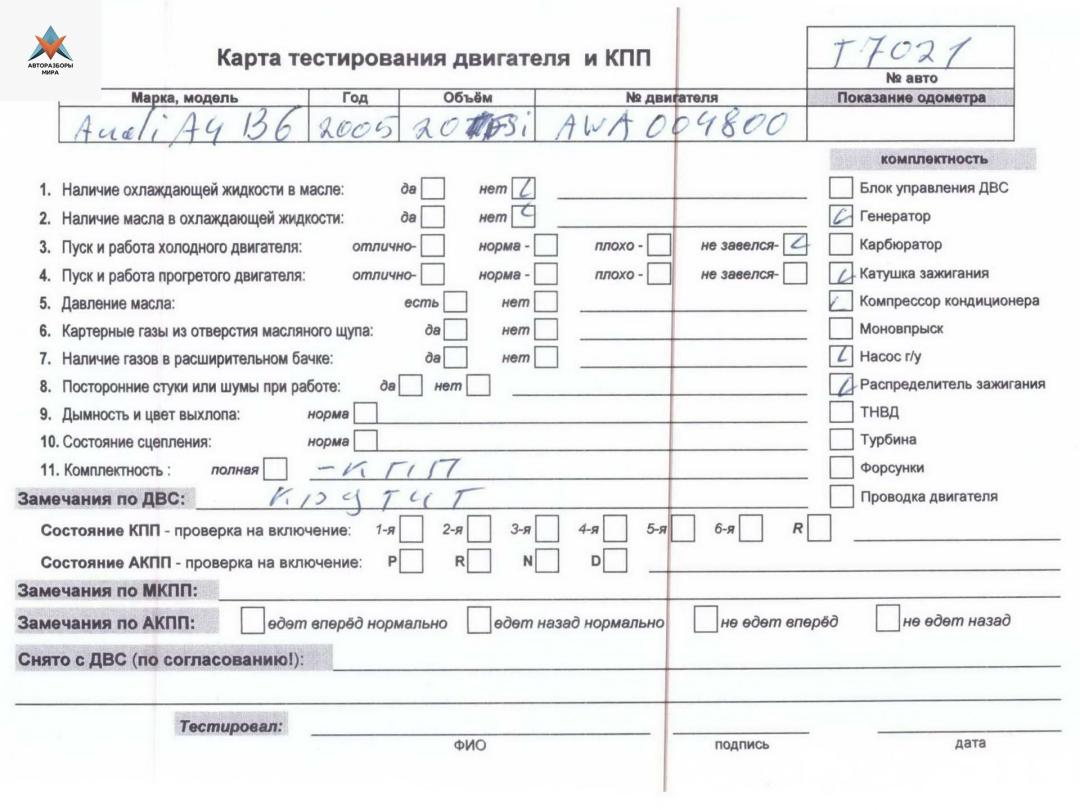 АВТОРАЗБОРЫ
МИРА
Карта тестирования двигателя и КПП
T7021
№ авто
Марка, модель Год Объём № двигателя Показание одометра
Audi A4 B6 2005 20 FSi AWA 004800
комплектность
1. Наличие охлаждающей жидкости в масле: да нет
Блок управления ДВС
2. Наличие масла в охлаждающей жидкости: да нет
Генератор
3. Пуск и работа холодного двигателя: отлично- норма - плохо - не завелся-
Карбюратор
4. Пуск и работа прогретого двигателя: отлично- норма - плохо - не завелся-
Катушка зажигания
5. Давление масла: есть нет
Компрессор кондиционера
6. Картерные газы из отверстия масляного щупа: да нет
Моновпрыск
7. Наличие газов в расширительном бачке: да нет
Насос г/у
8. Посторонние стуки или шумы при работе: да нет
Распределитель зажигания
9. Дымность и цвет выхлопа: норма
ТНВД
10. Состояние сцепления: норма
Турбина
11. Комплектность : полная -КПП
Форсунки
Замечания по ДВС: крутит
Проводка двигателя
Состояние КПП - проверка на включение: 1-я 2-я 3-я 4-я 5-я 6-я R
Состояние АКПП - проверка на включение: P R N D
Замечания по МКПП:
Замечания по АКПП: едет вперёд нормально едет назад нормально не едет вперёд не едет назад
Снято с ДВС (по согласованию!):
Тестировал:
ФИО подпись дата